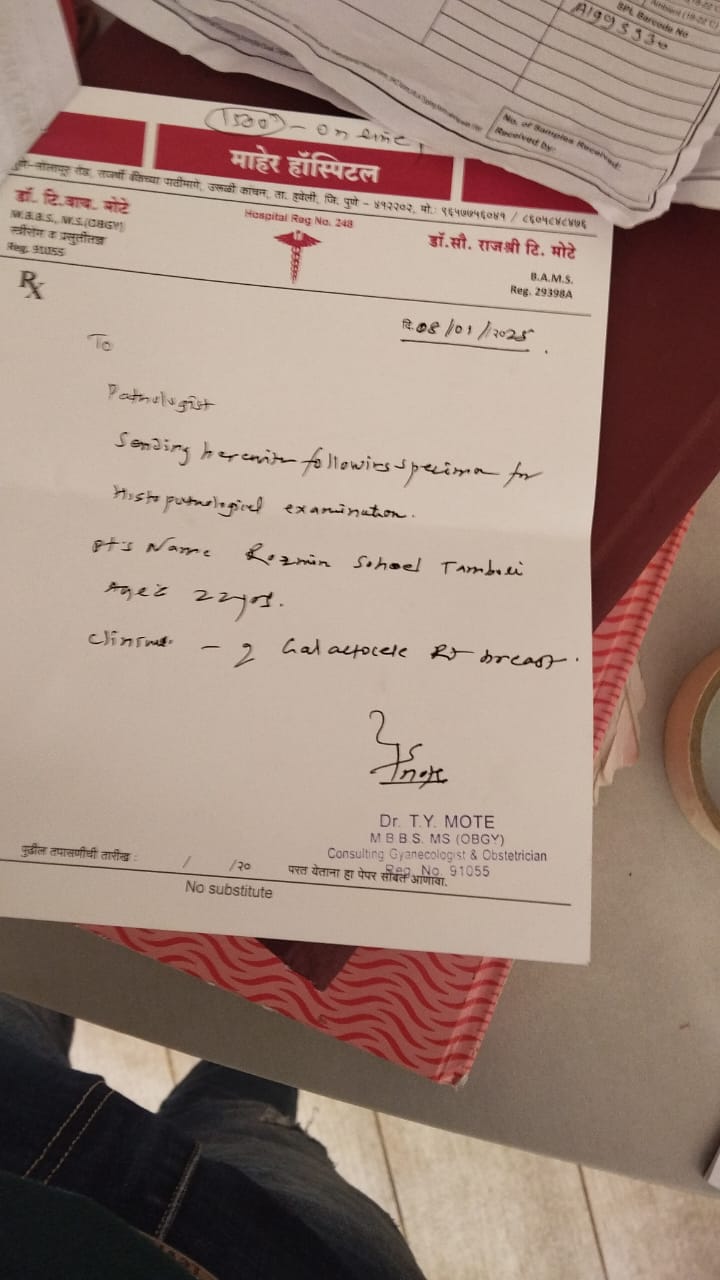 SPL Barcode No
A1995330
No. of Samples Received:
Received by:
1500 - Online
माहेर हॉस्पिटल
पुणे-सोलापूर रोड, राजर्षी बँकेच्या पाठीमागे, उरूळी कांचन, ता. हवेली, जि. पुणे - ४१२२०२, मो.:
Hospital Reg No. 248
डॉ. टि.वाय. मोटे
M.B.B.S., M.S.(OBGY)
स्त्रीरोग व प्रसुतीतज्ञ
Reg. 91055
डॉ.सौ. राजश्री टि. मोटे
B.A.M.S.
Reg. 29398A
Rx
दि. 08/01/2025
To
Pathologist
Sending herewith following specimen for
Histopathological examination.
pt's Name Rozmin Sohael Tamboli
Age: 22yrs.
- ? Galactocele Rt breast.
Dr. T.Y. MOTE
M B B S. MS (OBGY)
Consulting Gyanecologist & Obstetrician
Reg. No. 91055
पुढील तपासणीची तारीख : / /२०
परत येताना हा पेपर सोबत आणावा.
No substitute